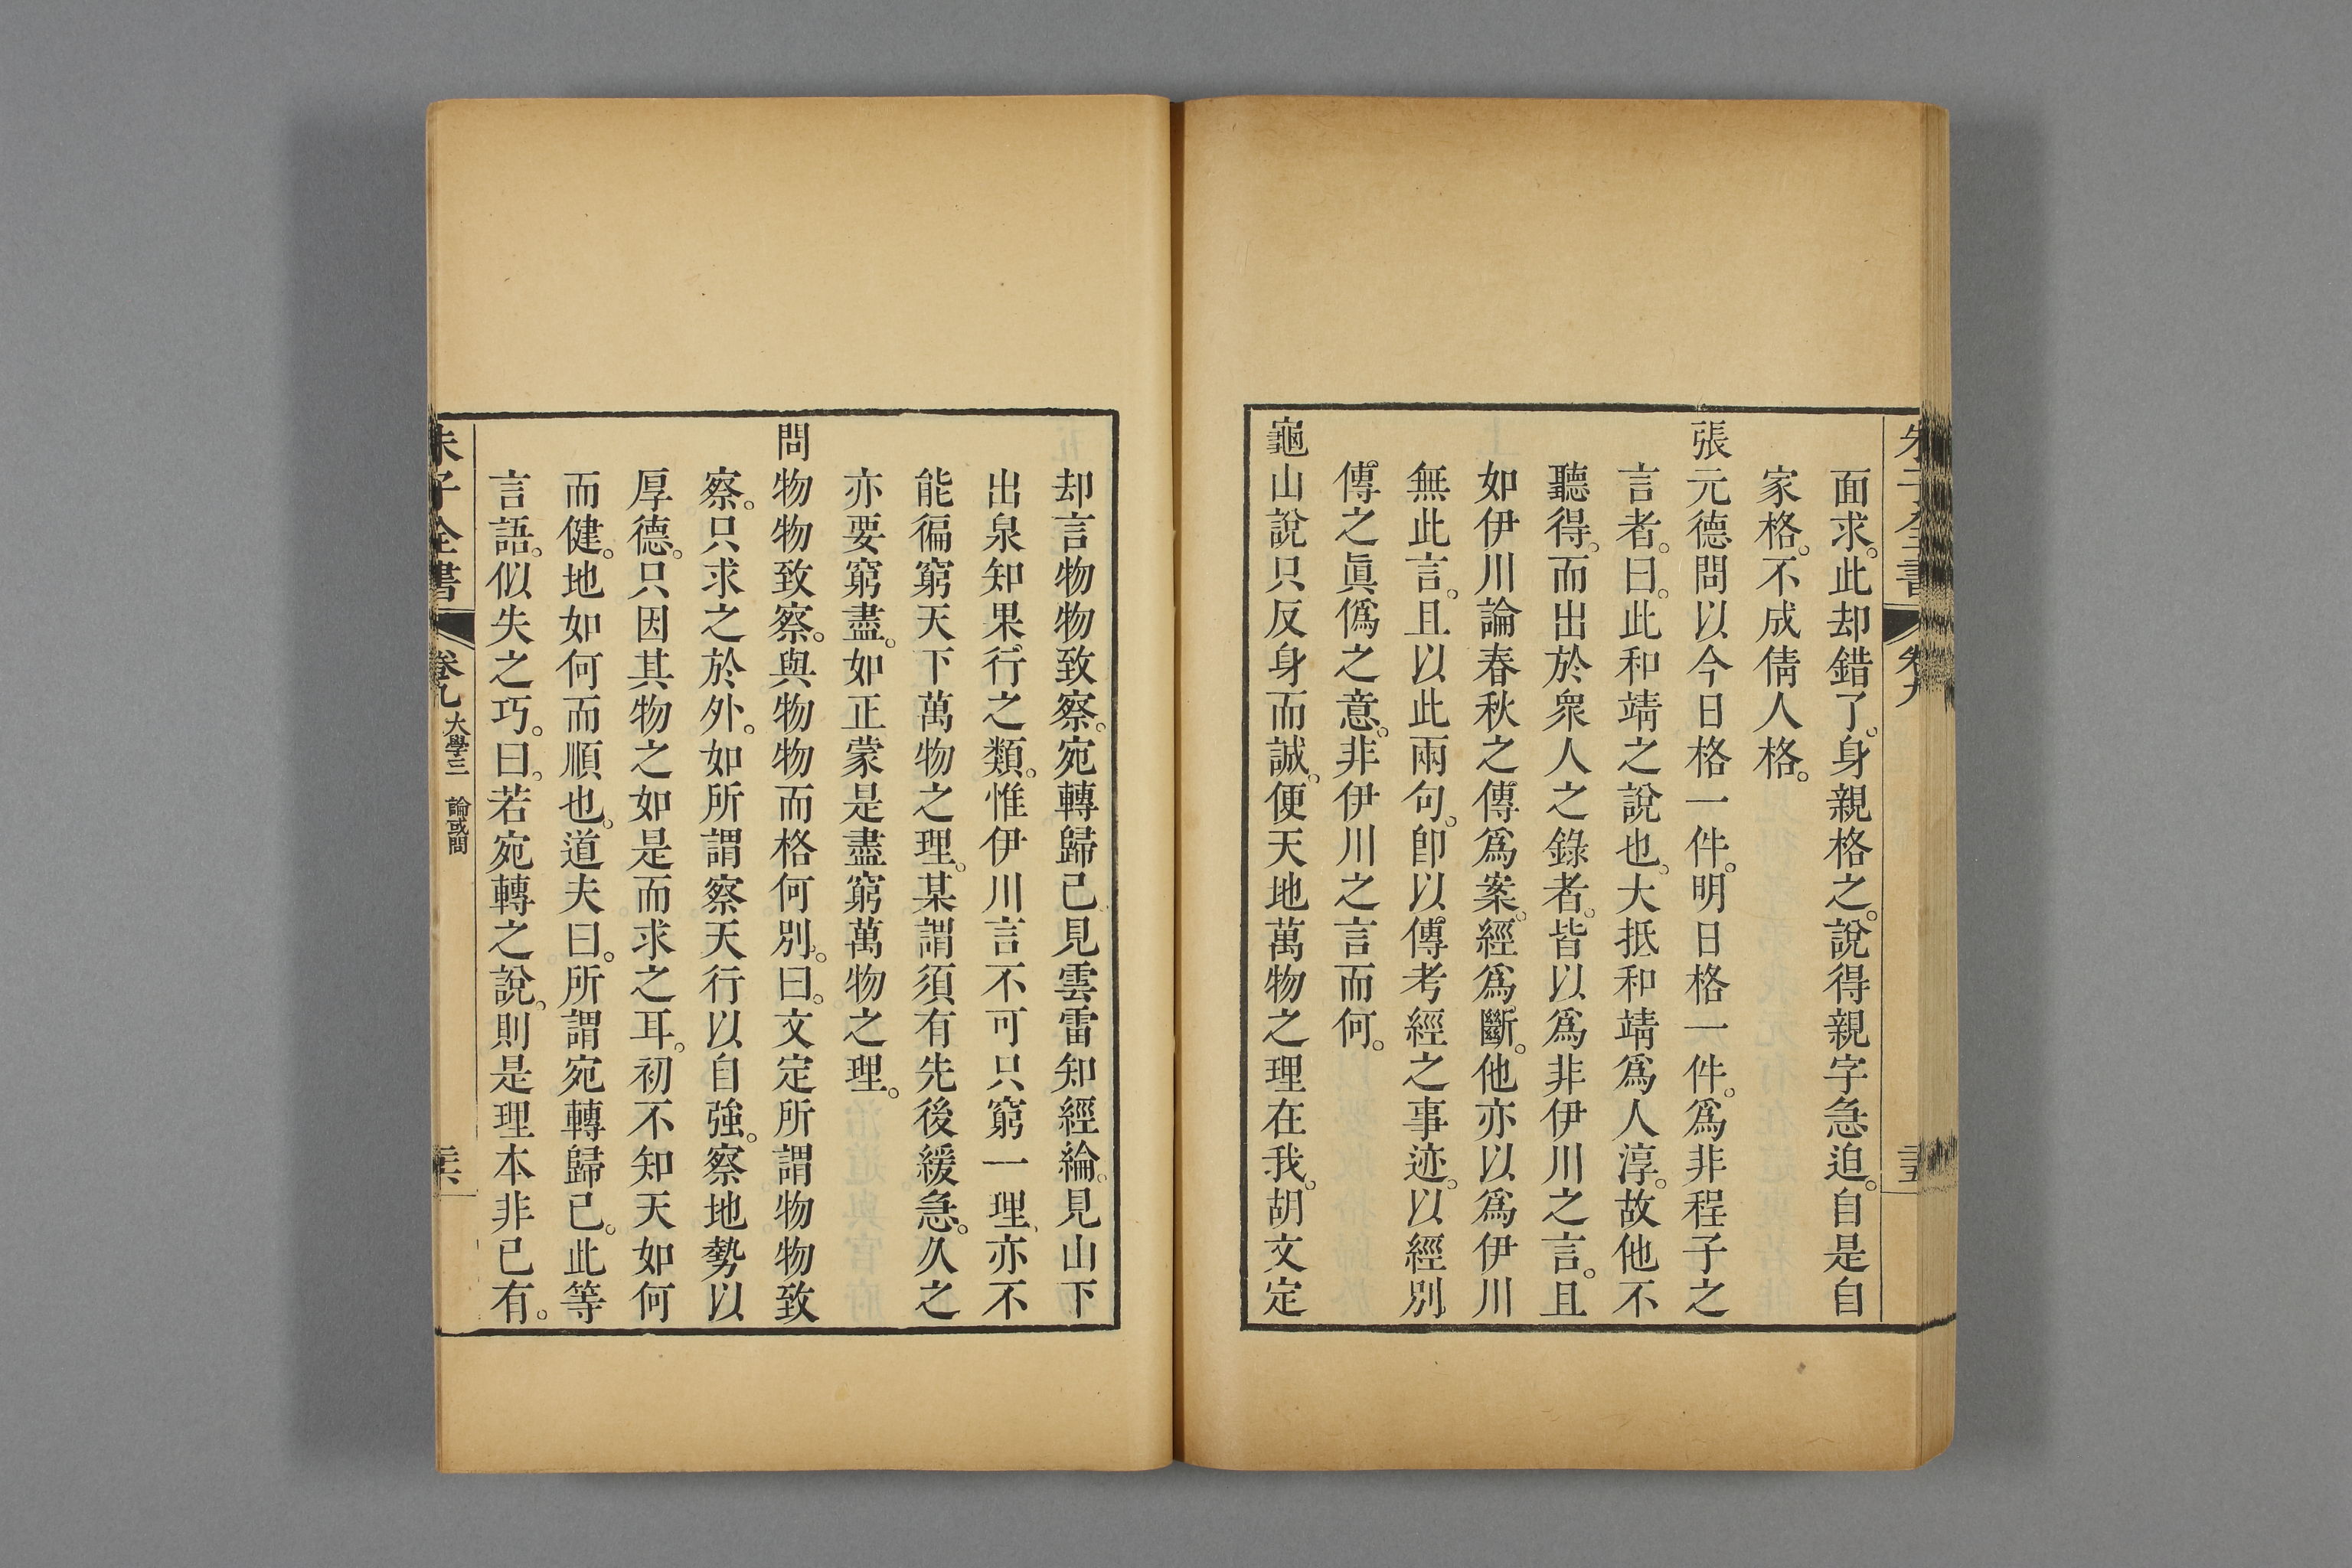 朱子全書 卷九
面求。此却錯了。身親格之。說得親字急迫。自是自
家格。不成倩人格。
張元德問以今日格一件。明日格一件。爲非程子之
言者。曰。此和靖之說也。大抵和靖爲人淳。故他不
聽得。而出於衆人之錄者。皆以爲非伊川之言。且
如伊川論春秋之傳爲案。經爲斷。他亦以爲伊川
無此言。且以此兩句。卽以傳考經之事迹。以經別
傳之眞僞之意。非伊川之言而何。
龜山說只反身而誠。便天地萬物之理在我。胡文定
却言物物致察。宛轉歸己見雲雷知經綸。見山下
出泉知果行之類。惟伊川言不可只窮一理、亦不
能徧窮天下萬物之理。某謂須有先後緩急。久之
亦要窮盡。如正蒙是盡窮萬物之理。
問物物致察。與物物而格何別。曰。文定所謂物物致
察。只求之於外。如所謂察天行以自強。察地勢以
厚德。只因其物之如是而求之耳。初不知天如何
而健。地如何而順也。道夫曰。所謂宛轉歸己。此等
言語。似失之巧。曰。若宛轉之說。則是理本非己有。
朱子全書 卷九 大學三 論或問